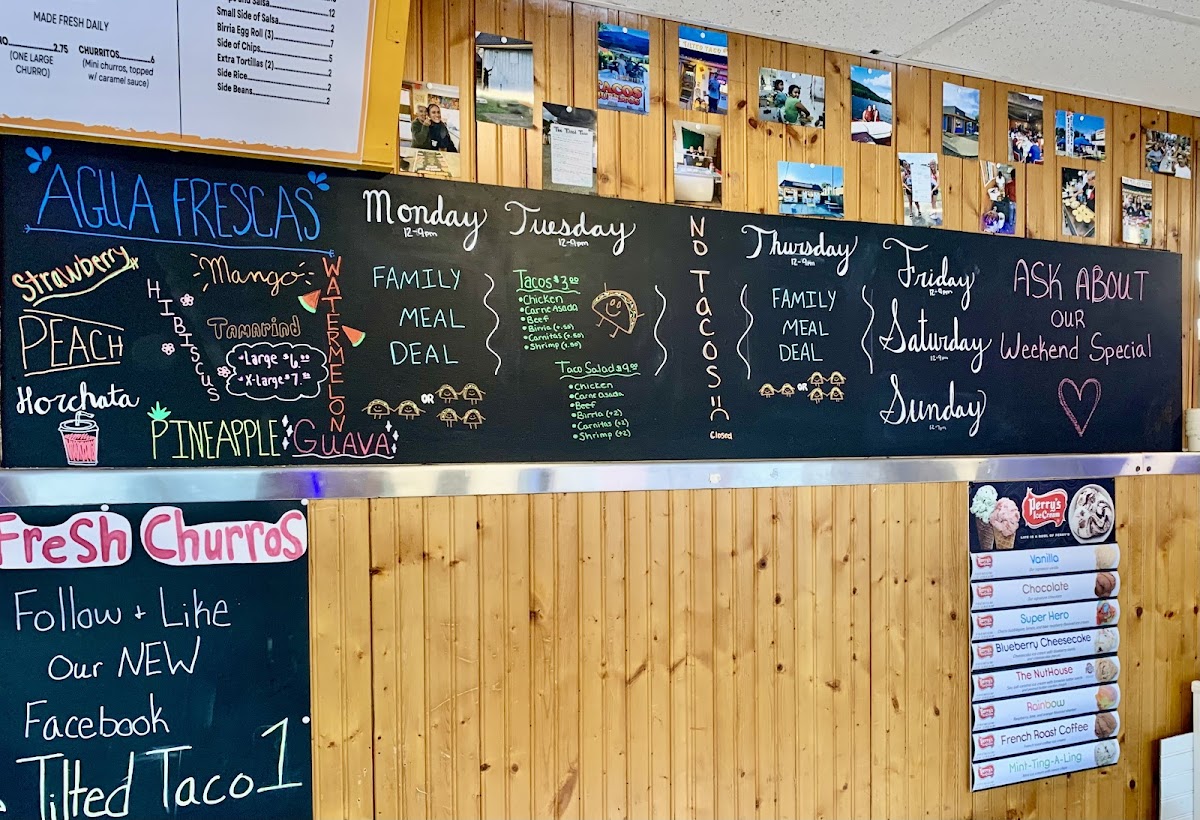 MADE FRESH DAILY
2.75
(ONE LARGE
CHURRO)
CHURRITOS 6
(Mini churros, topped
w/ caramel sauce)
12
Small Side of Salsa 2
Birria Egg Roll (3) 7
Side of Chips 5
Extra Tortillas (2) 2
Side Rice 2
Side Beans 2
AGUA FRESCAS
Strawberry
PEACH
Horchata
HIBISCUS
Mango
Tamarind
Large $6.00
X-Large $7.00
WATERMELON
PINEAPPLE
GUAVA
Monday
12-9pm
FAMILY
MEAL
DEAL
OR
Tuesday
12-9pm
Tacos $3.00
Chicken
Carne Asada
Beef
Birria (+.50)
Carnitas (+.50)
Shrimp (+.50)
Taco Salad $9.00
Chicken
Carne Asada
Beef
Birria (+2)
Carnitas (+2)
Shrimp (+2)
NO TACOS :(
Closed
Thursday
12-9pm
FAMILY
MEAL
DEAL
OR
Friday
12-9pm
Saturday
12-9pm
Sunday
ASK ABOUT
OUR
Weekend Special
TACOS
Fresh Churros
Follow + Like
Our NEW
Facebook
Tilted Taco 1
Perry's
Ice Cream
LIFE IS A BOWL OF PERRY'S
Vanilla
Chocolate
Super Hero
Blueberry Cheesecake
The NutHouse
Rainbow
French Roast Coffee
Mint-Ting-A-Ling